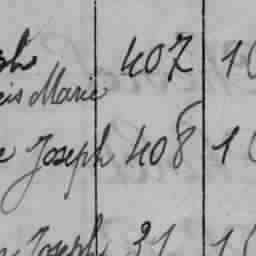 407 1
Marie
Joseph 408 1
Joseph 31 1